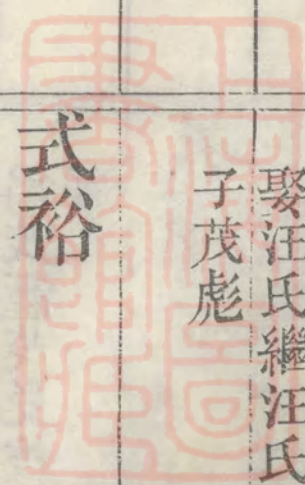 娶汪氏繼汪氏
子茂彪
式裕